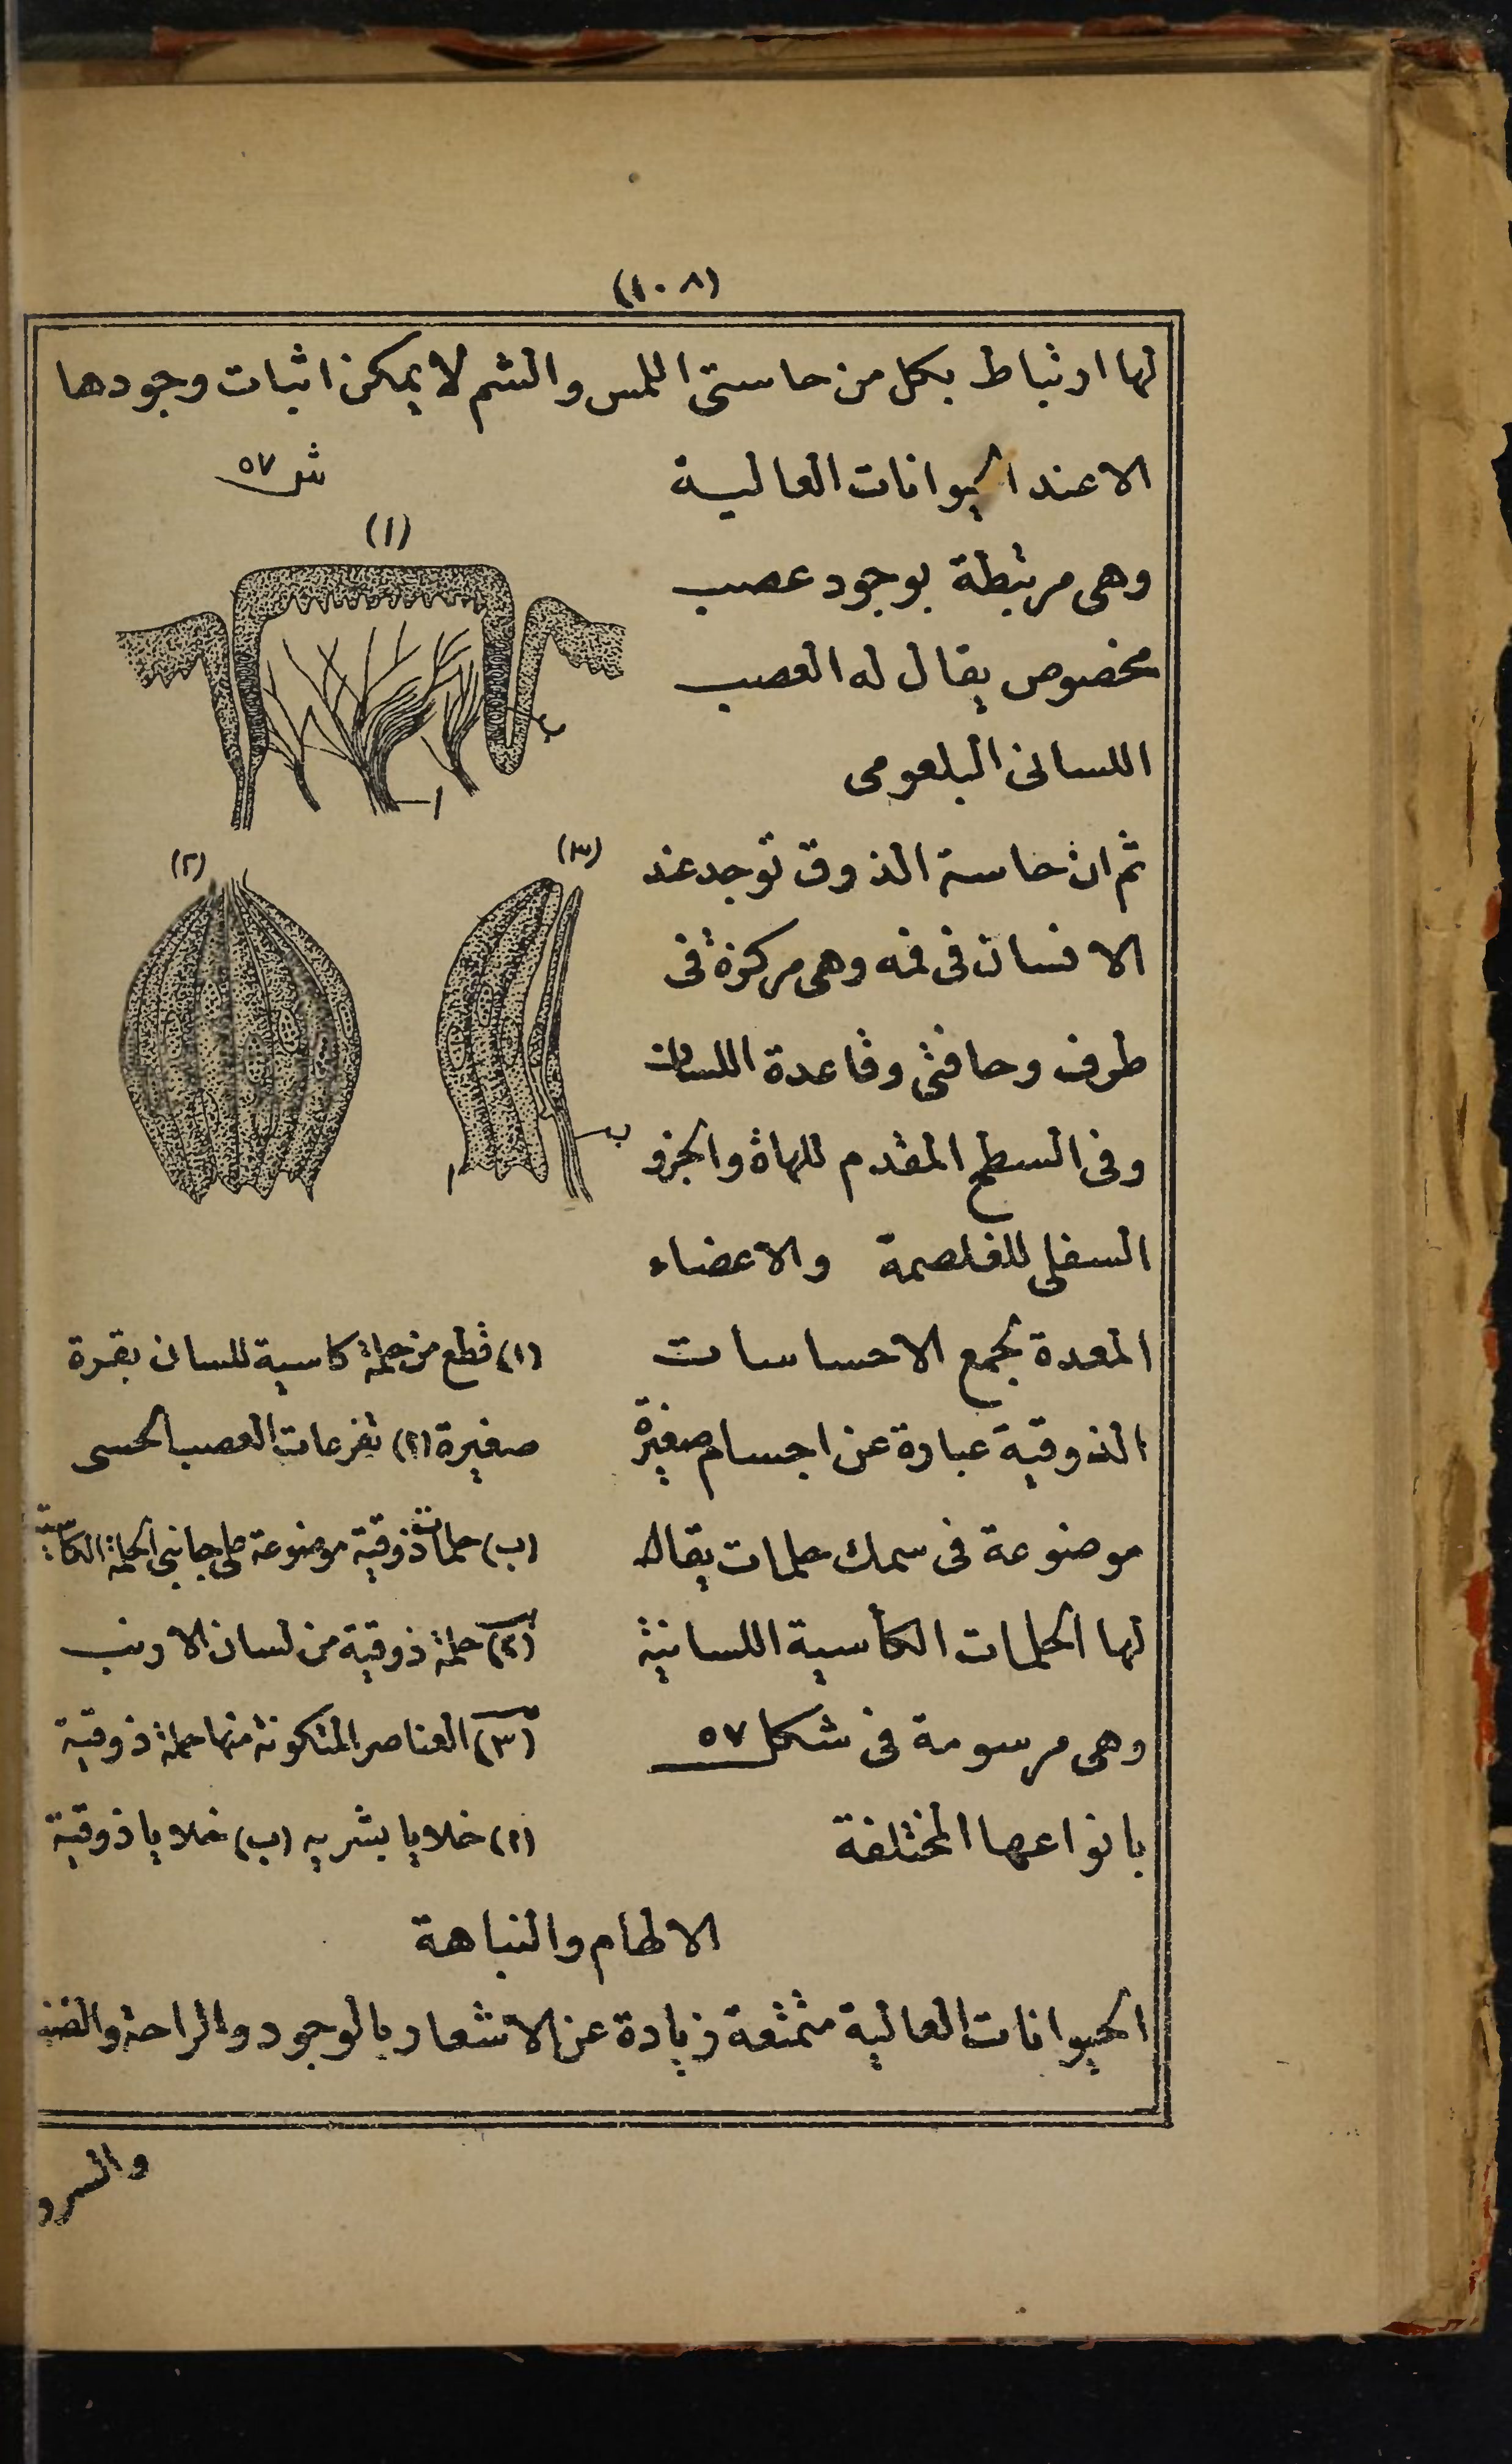 (١٠٨)
لها ارتباط بكل من حاستى اللمس والشم لا يمكن اثبات وجودها
الا عند الحيوانات العالية
وهى مرتبطة بوجود عصب
مخصوص يقال له العصب
اللسانى البلعومى
ثم ان حاسة الذوق توجد عند
الانسان فى فمه وهى مركزة فى
طرف وحافتى وقاعدة اللسان
وفى السطح المقدم للهاة والجزو
السفلى للغلصمة والاعضاء
المعدة لجمع الاحساسات
الذوقية عبارة عن اجسام صغيرة
موضوعة فى سمك حلمات يقال
لها الحلمات الكأسية اللسانية
وهى مرسومة فى شكل ٥٧
بانواعها المختلفة
ش ٥٧
(١)
ب
ا
(٢)
(٣)
ب
ا
(١) قطع من حلمة كاسية للسان بقرة
صغيرة (ا) تفرعات العصب الحسى
(ب) حلمات ذوقية موضوعة على جانبى الحلمة الكاسية
(٢) حلمة ذوقية من لسان الارنب
(٣) العناصر المتكونة منها حلمة ذوقية
(ا) خلايا بشريه (ب) خلايا ذوقية
الالهام والنباهة
الحيوانات العالية متمتعة زيادة عن الاشعار بالوجود والراحة
والسرو